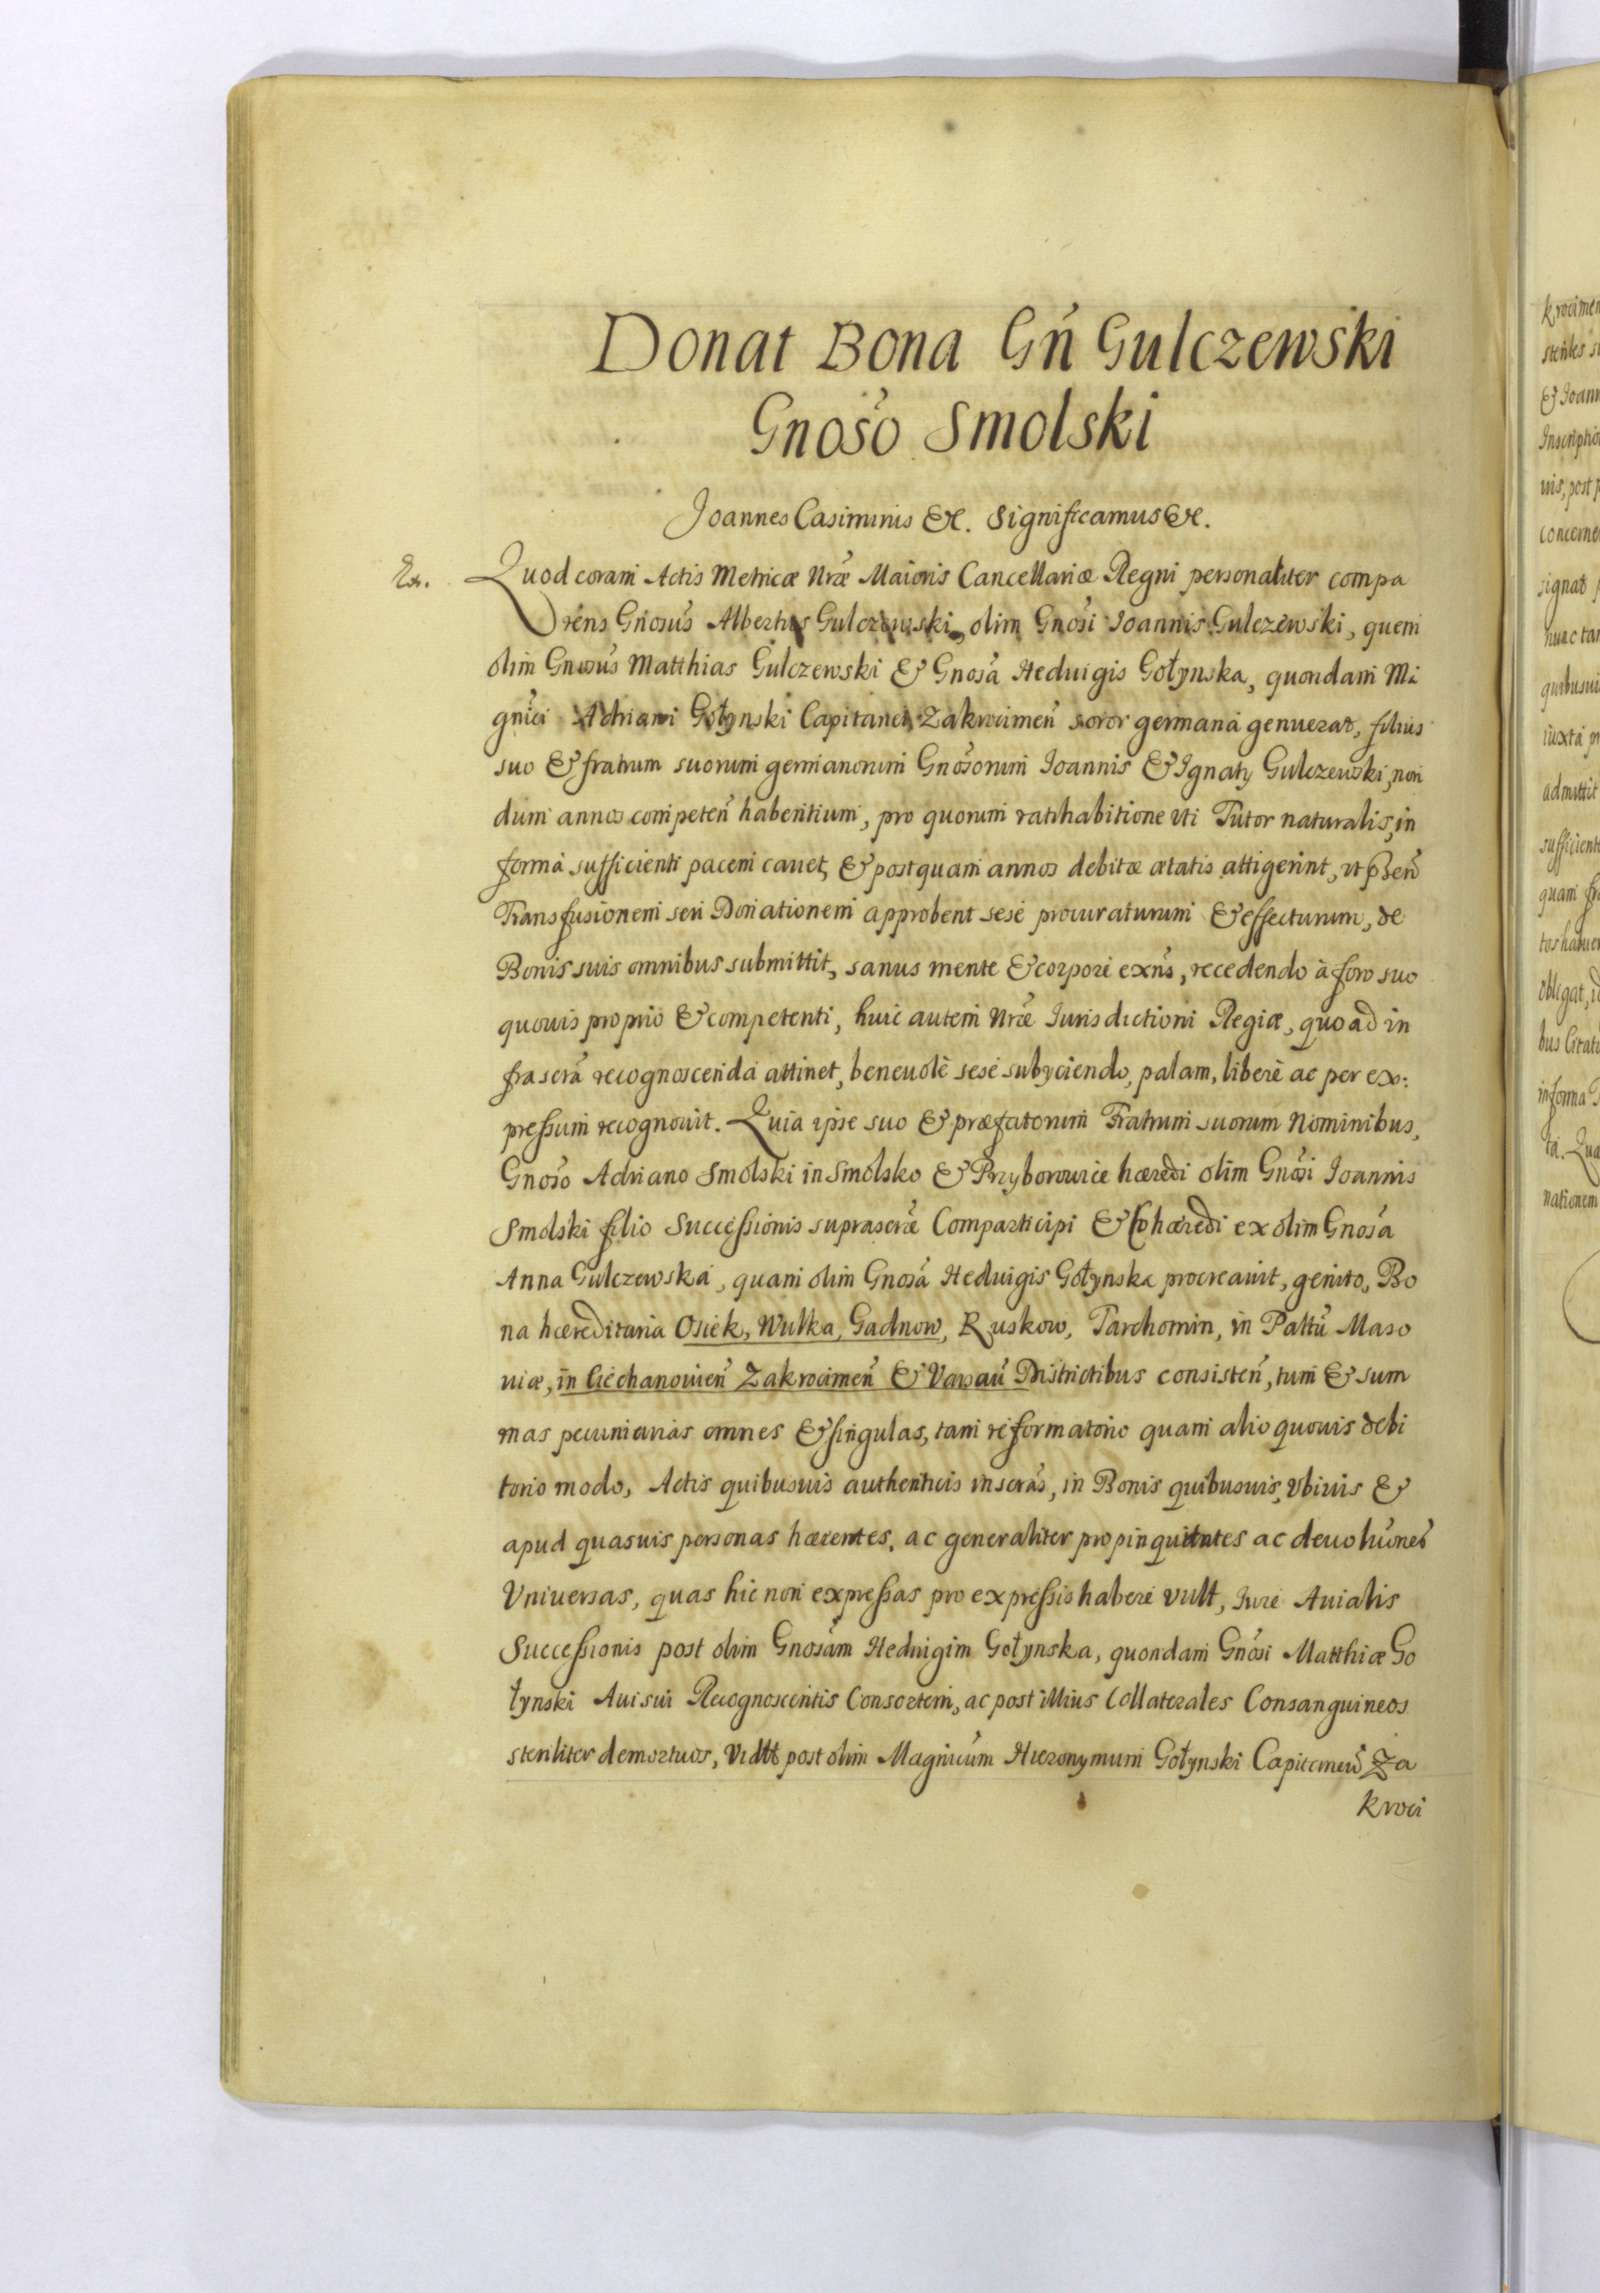 Donat Bona Gń Gulczewski
Gnoso Smolski
Joannes Casimirus &c. Significamus &c.
Quod coram Actis Metricæ Nræ Maioris Cancellariæ Regni personaliter compa
rens Gnosus Albertus Gulczewski, olim Gnosi Ioannis Gulczewski, quem
olim Gnosus Matthias Gulczewski & Gnosa Heduigis Gołynska, quondam Ma
gnici Adriani Gołynski Capitanei Zakrocimen soror germana genuerat, filius
suo & fratrum suorum germanorum Gnosorum Ioannis & Ignaty Gulczewski, non
dum annos competen habentium, pro quorum ratihabitione uti Tutor naturalis, in
forma sufficienti pacem cauet, & postquam annos debitæ ætatis attigerint, ut pnsen
Transfusionem seu Donationem approbent sese procuraturum & effecturum, de
Bonis suis omnibus submittit, sanus mente & corpore exns, recedendo à foro suo
quouis proprio & competenti, huic autem Nræ Iurisdictioni Regiæ, quo ad in
frascra recognoscenda attinet, beneuolè sese subyciendo, palam, liberè ac per ex:
pressum recognouit. Quia ipse suo & præfatorum Fratrum suorum Nominibus,
Gnoso Adriano Smolski in Smolsko & Przyborowice hæredi olim Gnosi Ioannis
Smolski filio Successionis suprascræ Comparticipi & Cohæredi ex olim Gnosa
Anna Gulczewska, quam olim Gnosa Heduigis Gołynska procreauit, genito, Bo
na hæreditaria Osiek, Wulka, Gadnow, Ruskow, Tarchomin, in Pattu Maso
uiæ, in Ciechanouien Zakrocimen & Varsau Districtibus consisten, tum & sum
mas pecuniarias omnes & singulas, tam reformatorio quam alio quouis debi
torio modo, Actis quibusuis authenticis inscras, in Bonis quibusuis, Vbiuis &
apud quasuis personas hærentes, ac generaliter propinquitates ac deuoluones
Vniuersas, quas hic non expressas pro expressis habere vult, Iure Auialis
Successionis post olim Gnosam Heduigim Gołynska, quondam Gnosi Matthiæ Go
łynski Aui sui Recognoscentis Consortem, ac post illius Collaterales Consanguineos
steriliter demortuos, Vidtt post olim Magnicum Hieronymum Gołynski Capitaneu Za
kroci